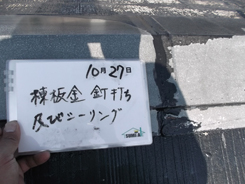 10月27日
棟板金 釘打ち
及びシーリング